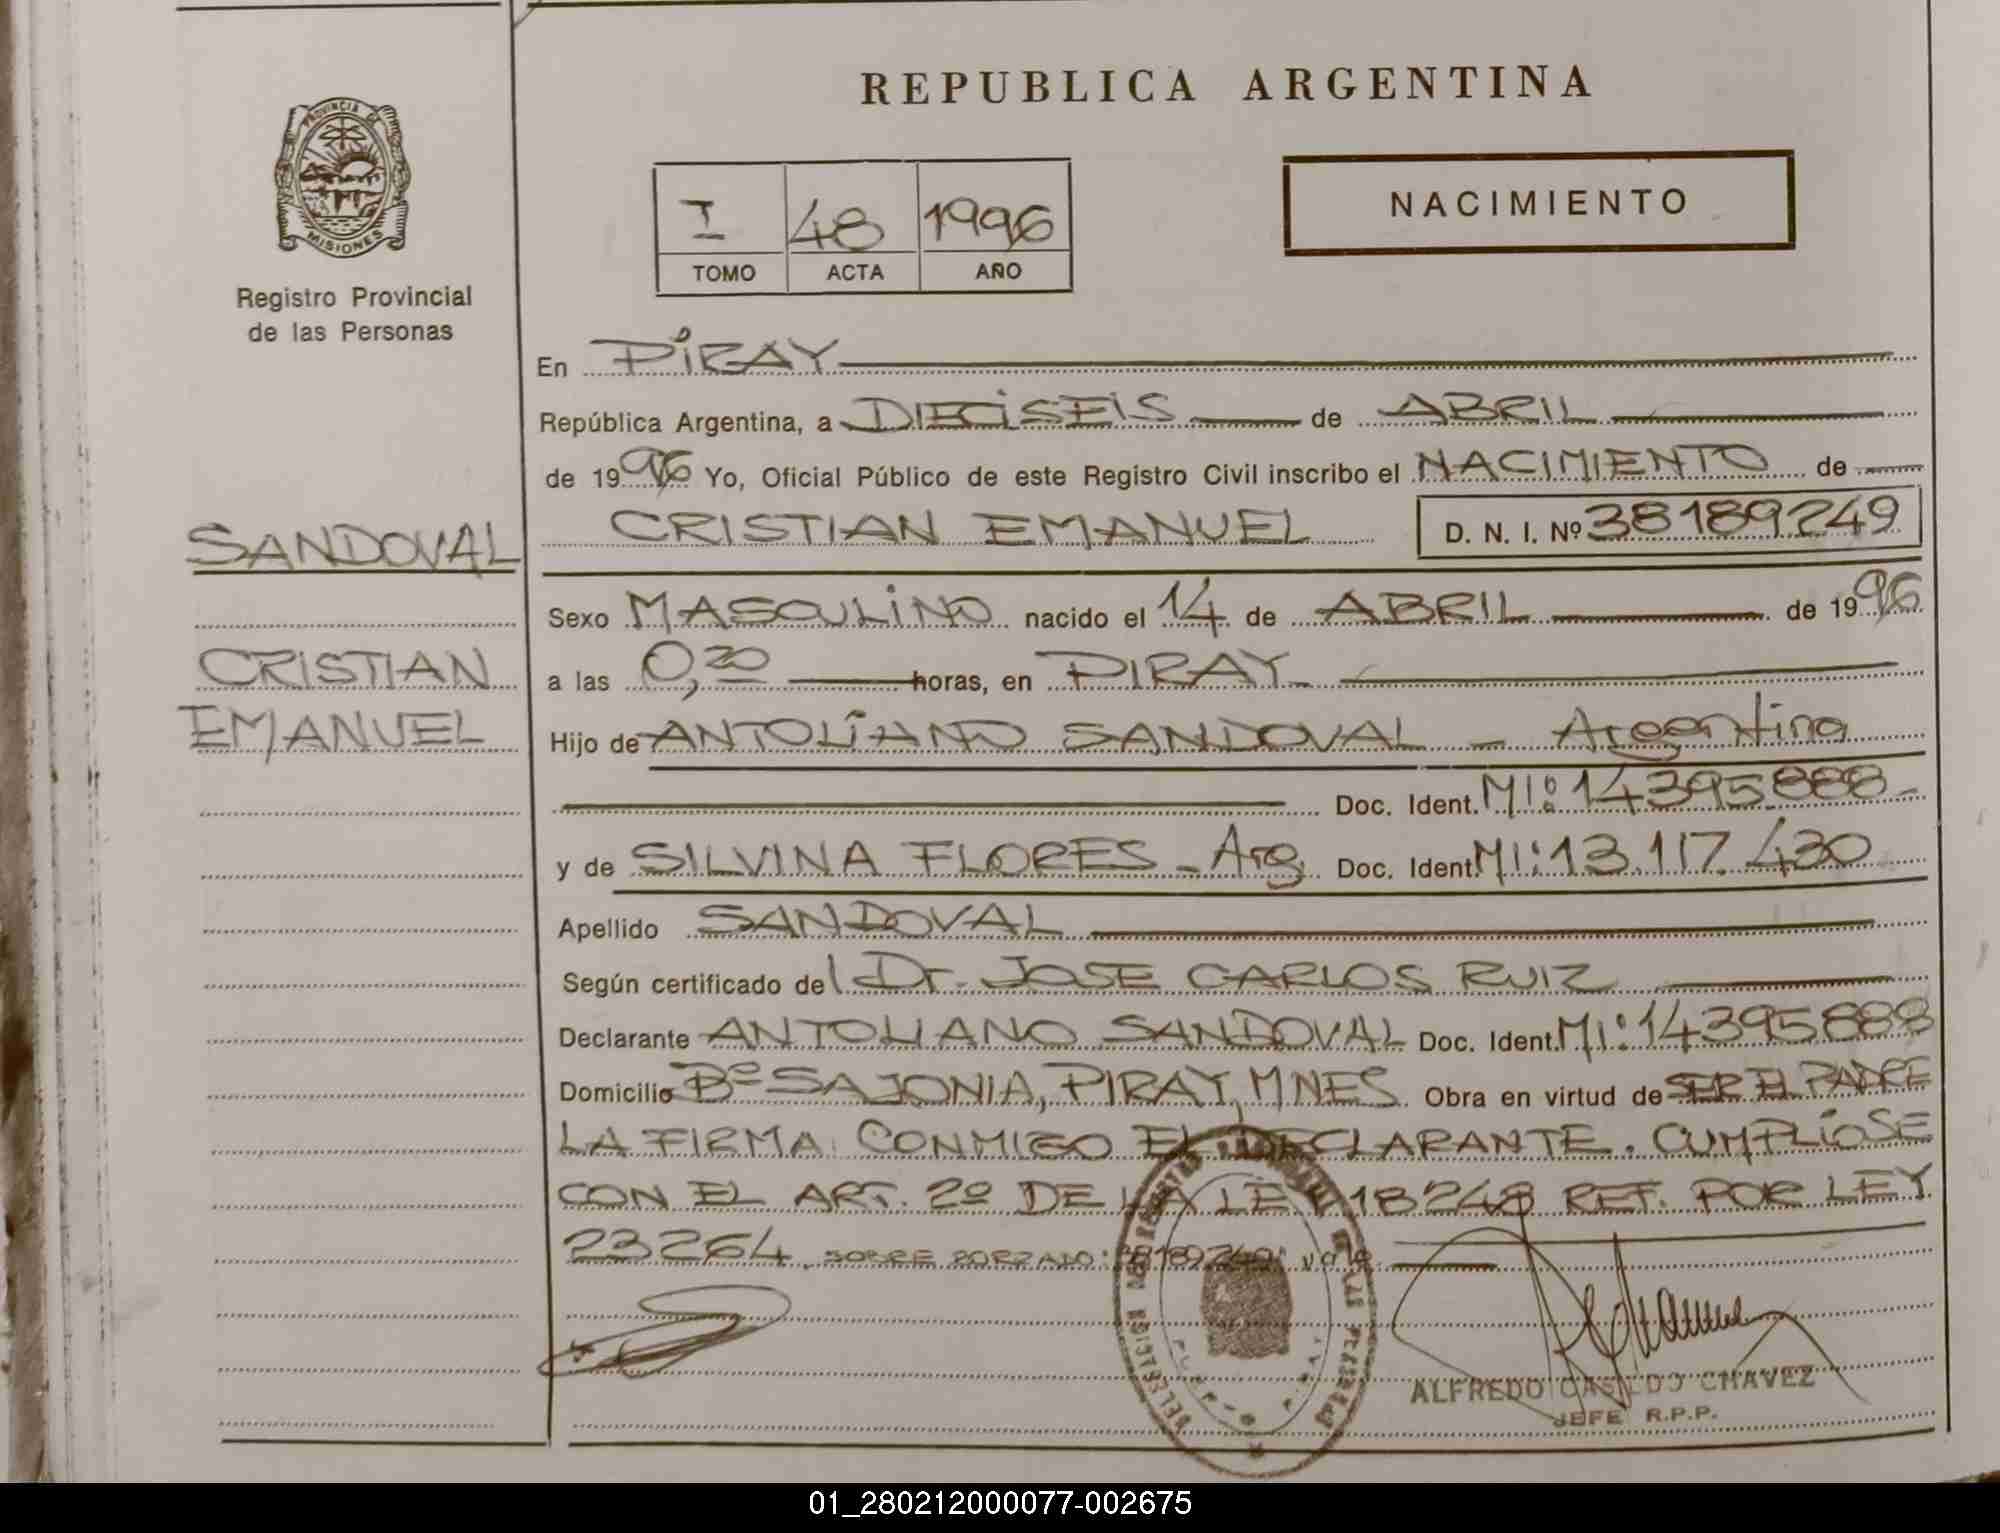 PROVINCIA DE
MISIONES
Registro Provincial
de las Personas
SANDOVAL
CRISTIAN
EMANUEL
REPUBLICA ARGENTINA
I 48 1996
TOMO ACTA AÑO
NACIMIENTO
En PIRAY
República Argentina, a DIECISEIS de ABRIL
de 1996 Yo, Oficial Público de este Registro Civil inscribo el NACIMIENTO de
CRISTIAN EMANUEL D. N. I. Nº 38189249
Sexo MASCULINO nacido el 14 de ABRIL de 1996
a las 0,20 horas, en PIRAY
Hijo de ANTOLIANO SANDOVAL - Argentina
Doc. Ident. MI: 14395888-
y de SILVINA FLORES - Arg. Doc. Ident. MI: 13.117.430
Apellido SANDOVAL
Según certificado del Dr. JOSE CARLOS RUIZ
Declarante ANTOLIANO SANDOVAL Doc. Ident. MI: 14395888
Domicilio Bº SAJONIA, PIRAY, MNES Obra en virtud de SER EL PADRE
LA FIRMA CONMIGO EL DECLARANTE. CUMPLIOSE
CON EL ART. 2º DE LA LEY 18248 REF. POR LEY
23264. SOBRE BORZADO: 38189249: vale
ALFREDO CASILDO CHAVEZ
JEFE R.P.P.
01_280212000077-002675